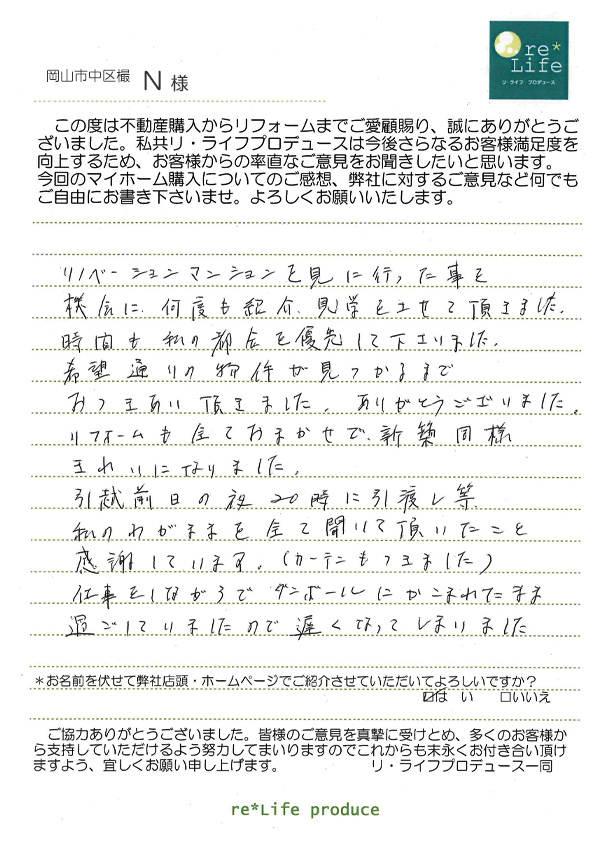 岡山市中区 N 様
re*
Life
リ・ライフ プロデュース
この度は不動産購入からリフォームまでご愛顧賜り、誠にありがとうご
ざいました。私共リ・ライフプロデュースは今後さらなるお客様満足度を
向上するため、お客様からの率直なご意見をお聞きしたいと思います。
今回のマイホーム購入についてのご感想、弊社に対するご意見など何でも
ご自由にお書き下さいませ。よろしくお願いいたします。
リノベーションマンションを見に行った事を
機会に、何度も紹介、見学をさせて頂きました。
時間も私の都合を優先して下さいました。
希望通りの物件が見つかるまで
おつきあい頂きました。ありがとうございました。
リフォームも全ておまかせで、新築同様
きれいになりました。
引越前日の夜20時に引渡し等
私のわがままを全て聞いて頂いたこと
感謝しています。(カーテンもつきました)
仕事をしながらでダンボールにかこまれたまま
過ごしていましたので遅くなってしまいました
*お名前を伏せて弊社店頭・ホームページでご紹介させていただいてよろしいですか？
☑はい □いいえ
ご協力ありがとうございました。皆様のご意見を真摯に受けとめ、多くのお客様か
ら支持していただけるよう努力してまいりますのでこれからも末永くお付き合い頂け
ますよう、宜しくお願い申し上げます。 リ・ライフプロデュース一同
re*Life produce